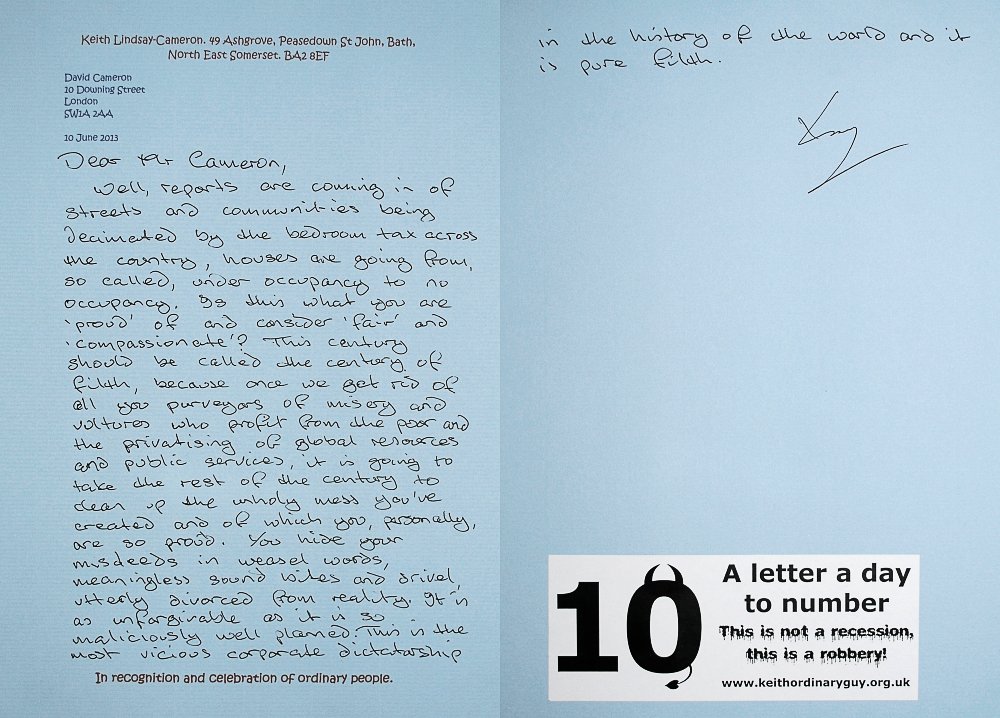 Keith Lindsay-Cameron. 49 Ashgrove, Peasedown St John, Bath,
North East Somerset. BA2 8EF
David Cameron
10 Downing Street
London
SW1A 2AA
10 June 2013
Dear Mr Cameron,
Well, reports are coming in of
streets and communities being
decimated by the bedroom tax across
the country, houses are going from,
so called, under occupancy to no
occupancy. Is this what you are
'proud' of and consider 'fair' and
'compassionate'? This century
should be called the century of
filth, because once we get rid of
all you purveyors of misery and
vultures who profit from the poor and
the privatising of global resources
and public services, it is going to
take the rest of the century to
clean up the unholy mess you've
created and of which you, personally,
are so proud. You hide your
misdeeds in weasel words,
meaningless sound bites and drivel,
utterly divorced from reality. It is
as unforgivable as it is so
maliciously well planned. This is the
most vicious corporate dictatorship
In recognition and celebration of ordinary people.
in the history of the world and it
is pure filth.
10
A letter a day
to number
This is not a recession,
this is a robbery!
www.keithordinaryguy.org.uk